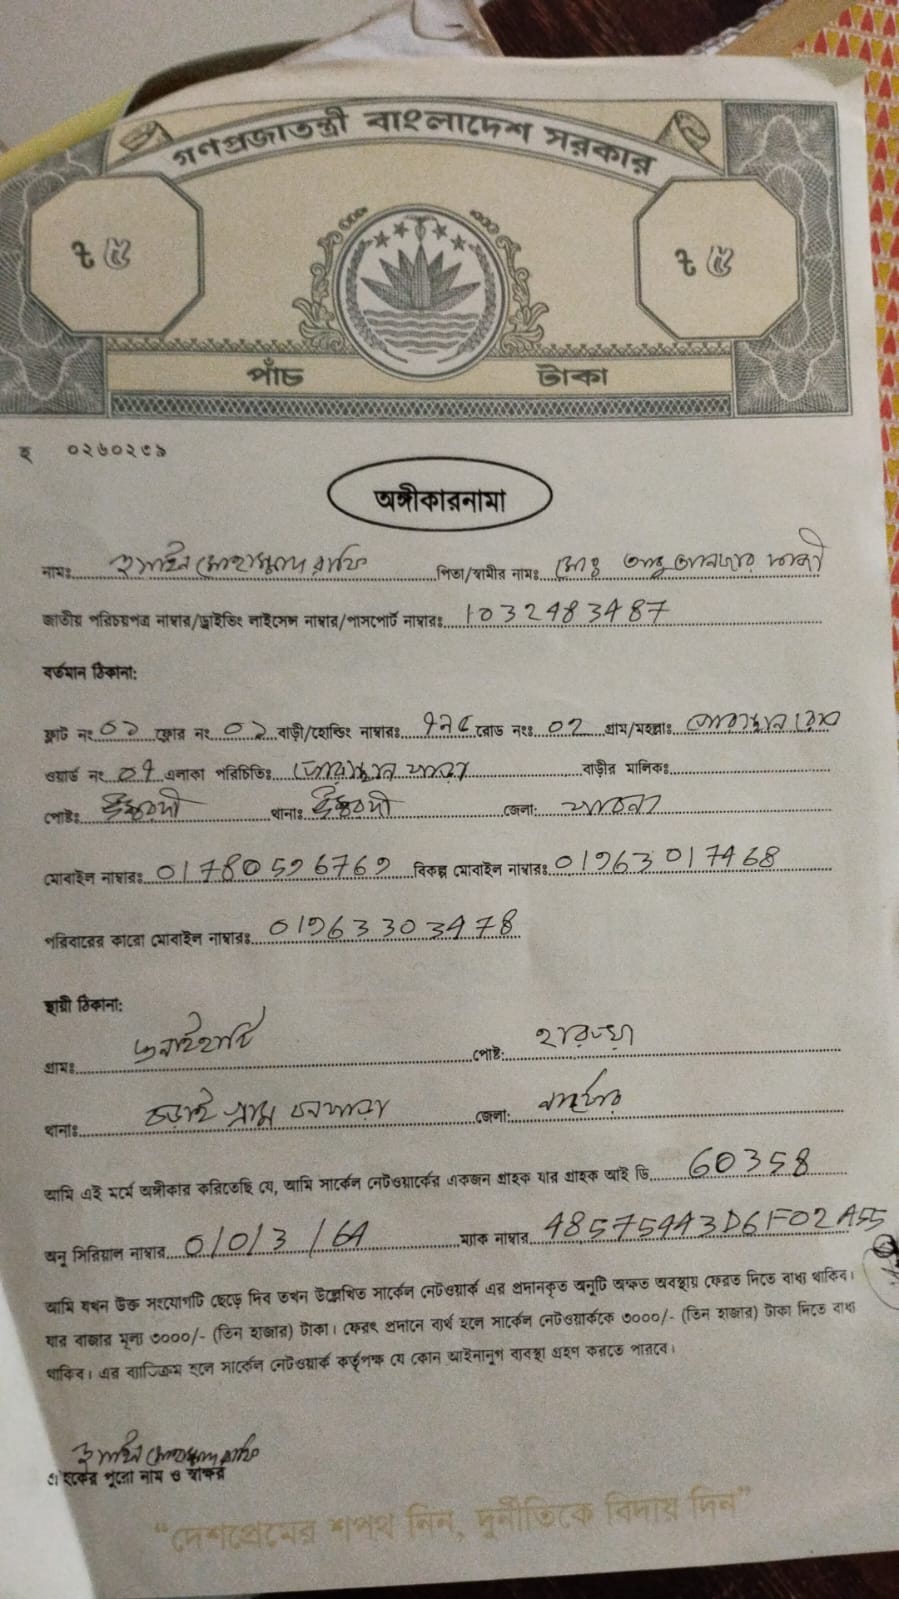 গণপ্রজাতন্ত্রী বাংলাদেশ সরকার
৳ ৫ ৳ ৫
পাঁচ টাকা
হ ০২৬০২৩৯
অঙ্গীকারনামা
নামঃ হুসাইন মোহাম্মাদ রাফি পিতা/স্বামীর নামঃ মোঃ আবু
জাতীয় পরিচয়পত্র নাম্বার/ড্রাইভিং লাইসেন্স নাম্বার/পাসপোর্ট নাম্বারঃ 1032483487
বর্তমান ঠিকানা:
ফ্লাট নং ০১ ফ্লোর নং ০১ বাড়ী/হোল্ডিং নাম্বারঃ রোড নংঃ গ্রাম/মহল্লাঃ
ওয়ার্ড নং ০৭ এলাকা পরিচিতিঃ বাড়ীর মালিকঃ
পোষ্টঃ ঈশ্বরদী থানাঃ ঈশ্বরদী জেলা: পাবনা
মোবাইল নাম্বারঃ বিকল্প মোবাইল নাম্বারঃ
পরিবারের কারো মোবাইল নাম্বারঃ
স্থায়ী ঠিকানা:
গ্রামঃ পোষ্ট:
থানাঃ বড়াই গ্রাম বনপাড়া জেলা: নাটোর
আমি এই মর্মে অঙ্গীকার করিতেছি যে, আমি সার্কেল নেটওয়ার্কের একজন গ্রাহক যার গ্রাহক আই ডি 60358
অনু সিরিয়াল নাম্বার 0/0/3/64 ম্যাক নাম্বার 48575443D61F02A55
আমি যখন উক্ত সংযোগটি ছেড়ে দিব তখন উল্লেখিত সার্কেল নেটওয়ার্ক এর প্রদানকৃত অনুটি অক্ষত অবস্থায় ফেরত দিতে বাধ্য থাকিব।
যার বাজার মূল্য ৩০০০/- (তিন হাজার) টাকা। ফেরৎ প্রদানে ব্যর্থ হলে সার্কেল নেটওয়ার্ককে ৩০০০/- (তিন হাজার) টাকা দিতে বাধ্য
থাকিব। এর ব্যতিক্রম হলে সার্কেল নেটওয়ার্ক কর্তৃপক্ষ যে কোন আইনানুগ ব্যবস্থা গ্রহণ করতে পারবে।
হুসাইন মোহাম্মাদ রাফি
গ্রাহকের পুরো নাম ও স্বাক্ষর
“দেশপ্রেমের শপথ নিন, দুর্নীতিকে বিদায় দিন”